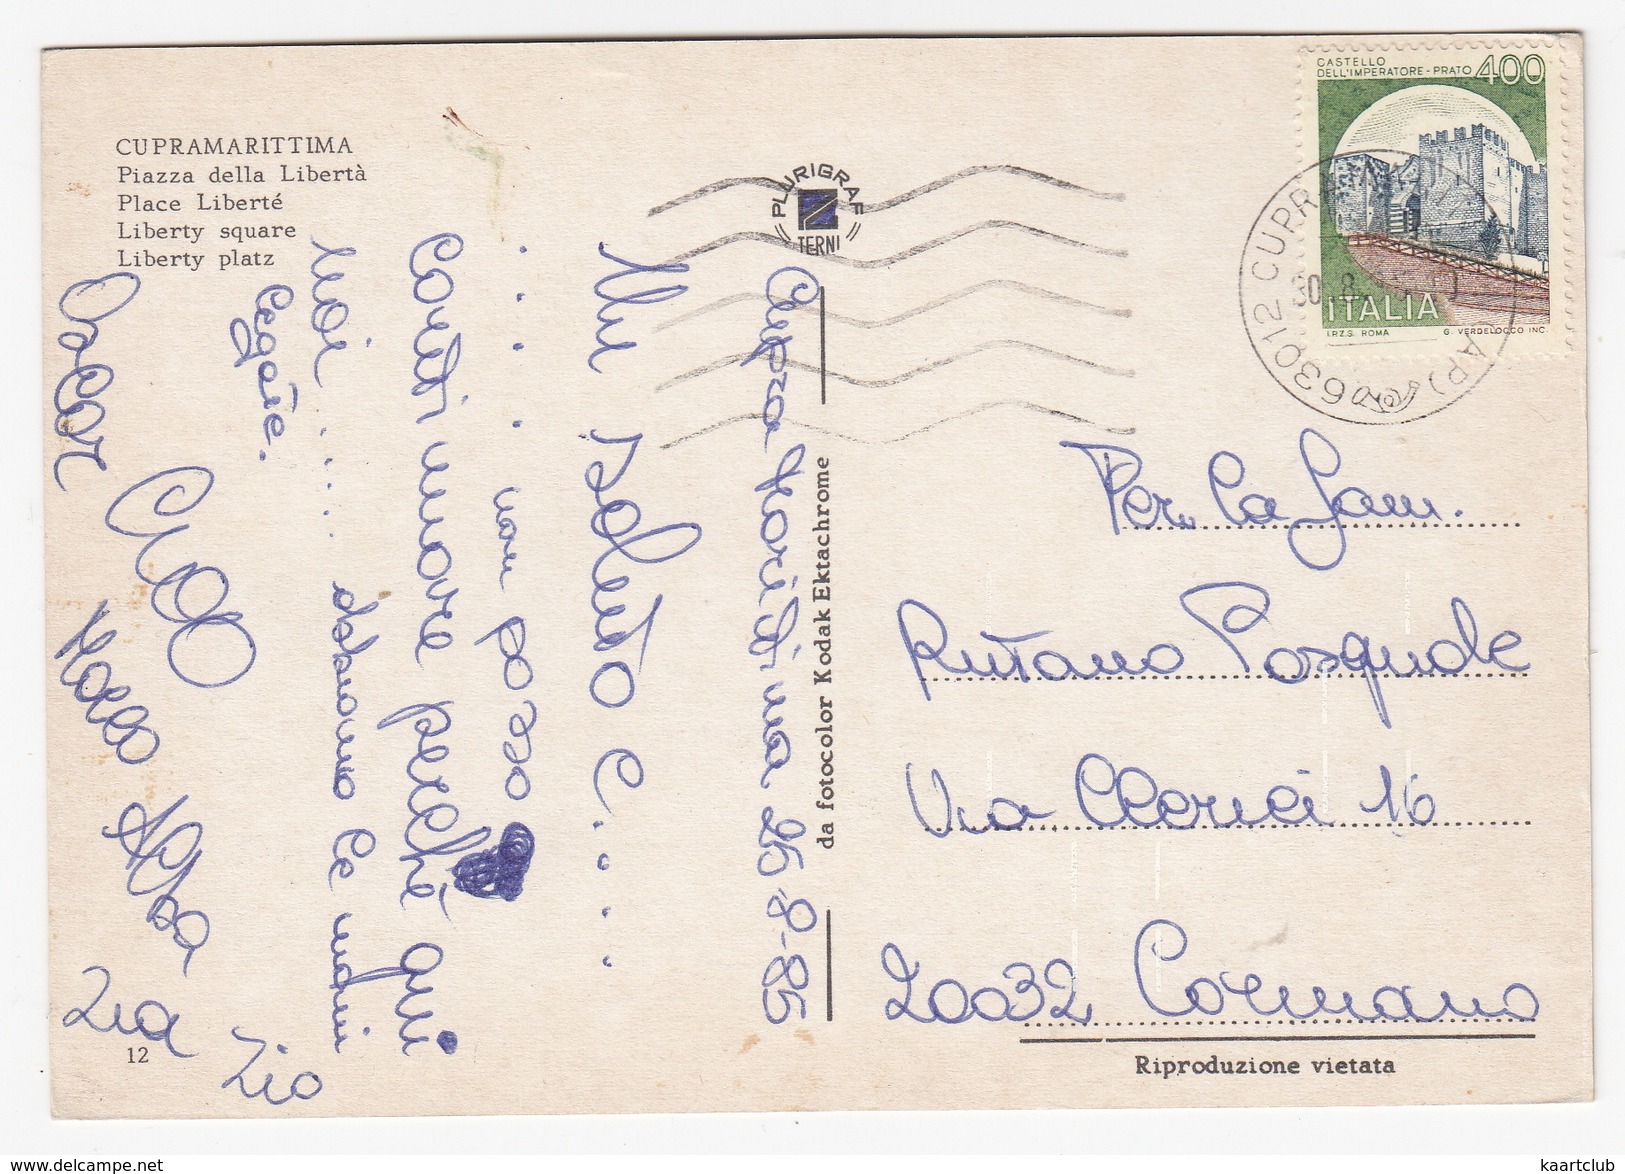 CUPRAMARITTIMA
Piazza della Libertà
Place Liberté
Liberty square
Liberty platz
Cupra Marittima 25-8-85
Un saluto e....
.... non posso
continuare perchè qui
noi .... abbiamo le mani
legate.
Oscar Ciao
Marco Alba
Zia Zio
12
PLURIGRAF
TERNI
da fotocolor Kodak Ektachrome
CASTELLO
DELL'IMPERATORE - PRATO 400
ITALIA
I.P.Z.S. ROMA G. VERDELOCCO INC.
63012 CUPRA
30 8
(AP)
Per la Fam.
Rutano Pasquale
Via Clerici 16
20032 Cormano
Riproduzione vietata
kaartclub